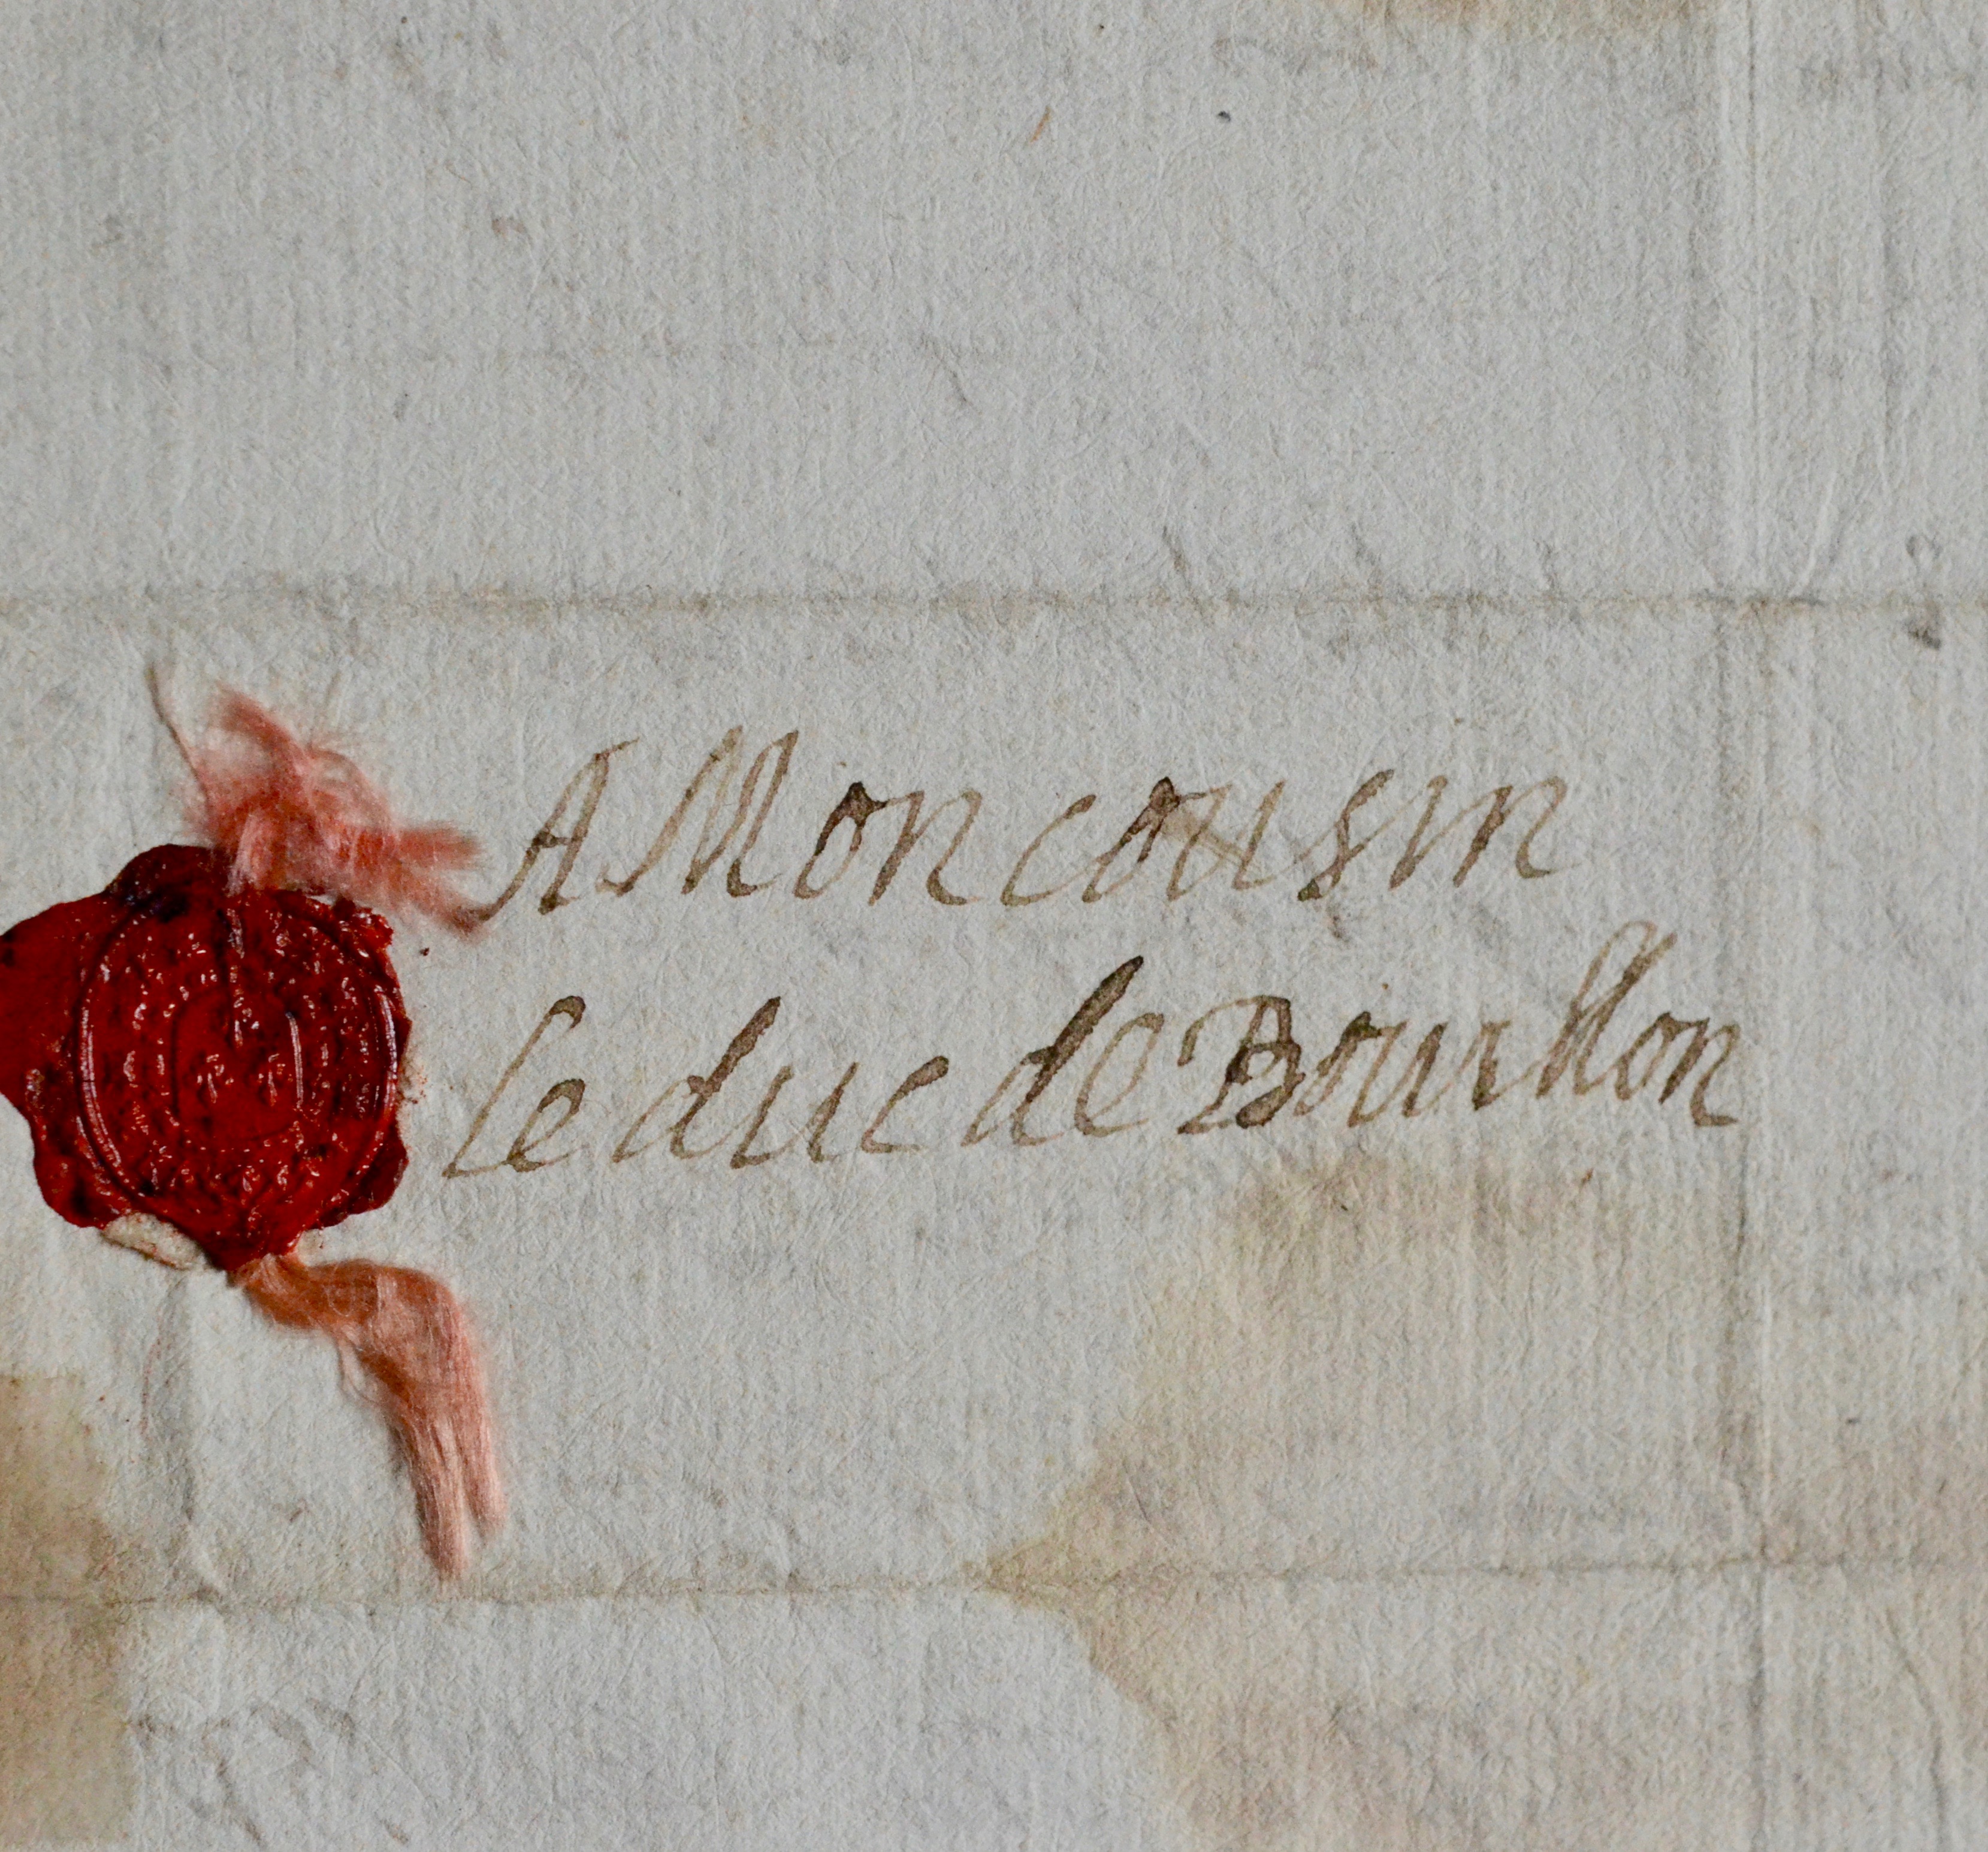 A Mon cousin
le duc de Bourbon